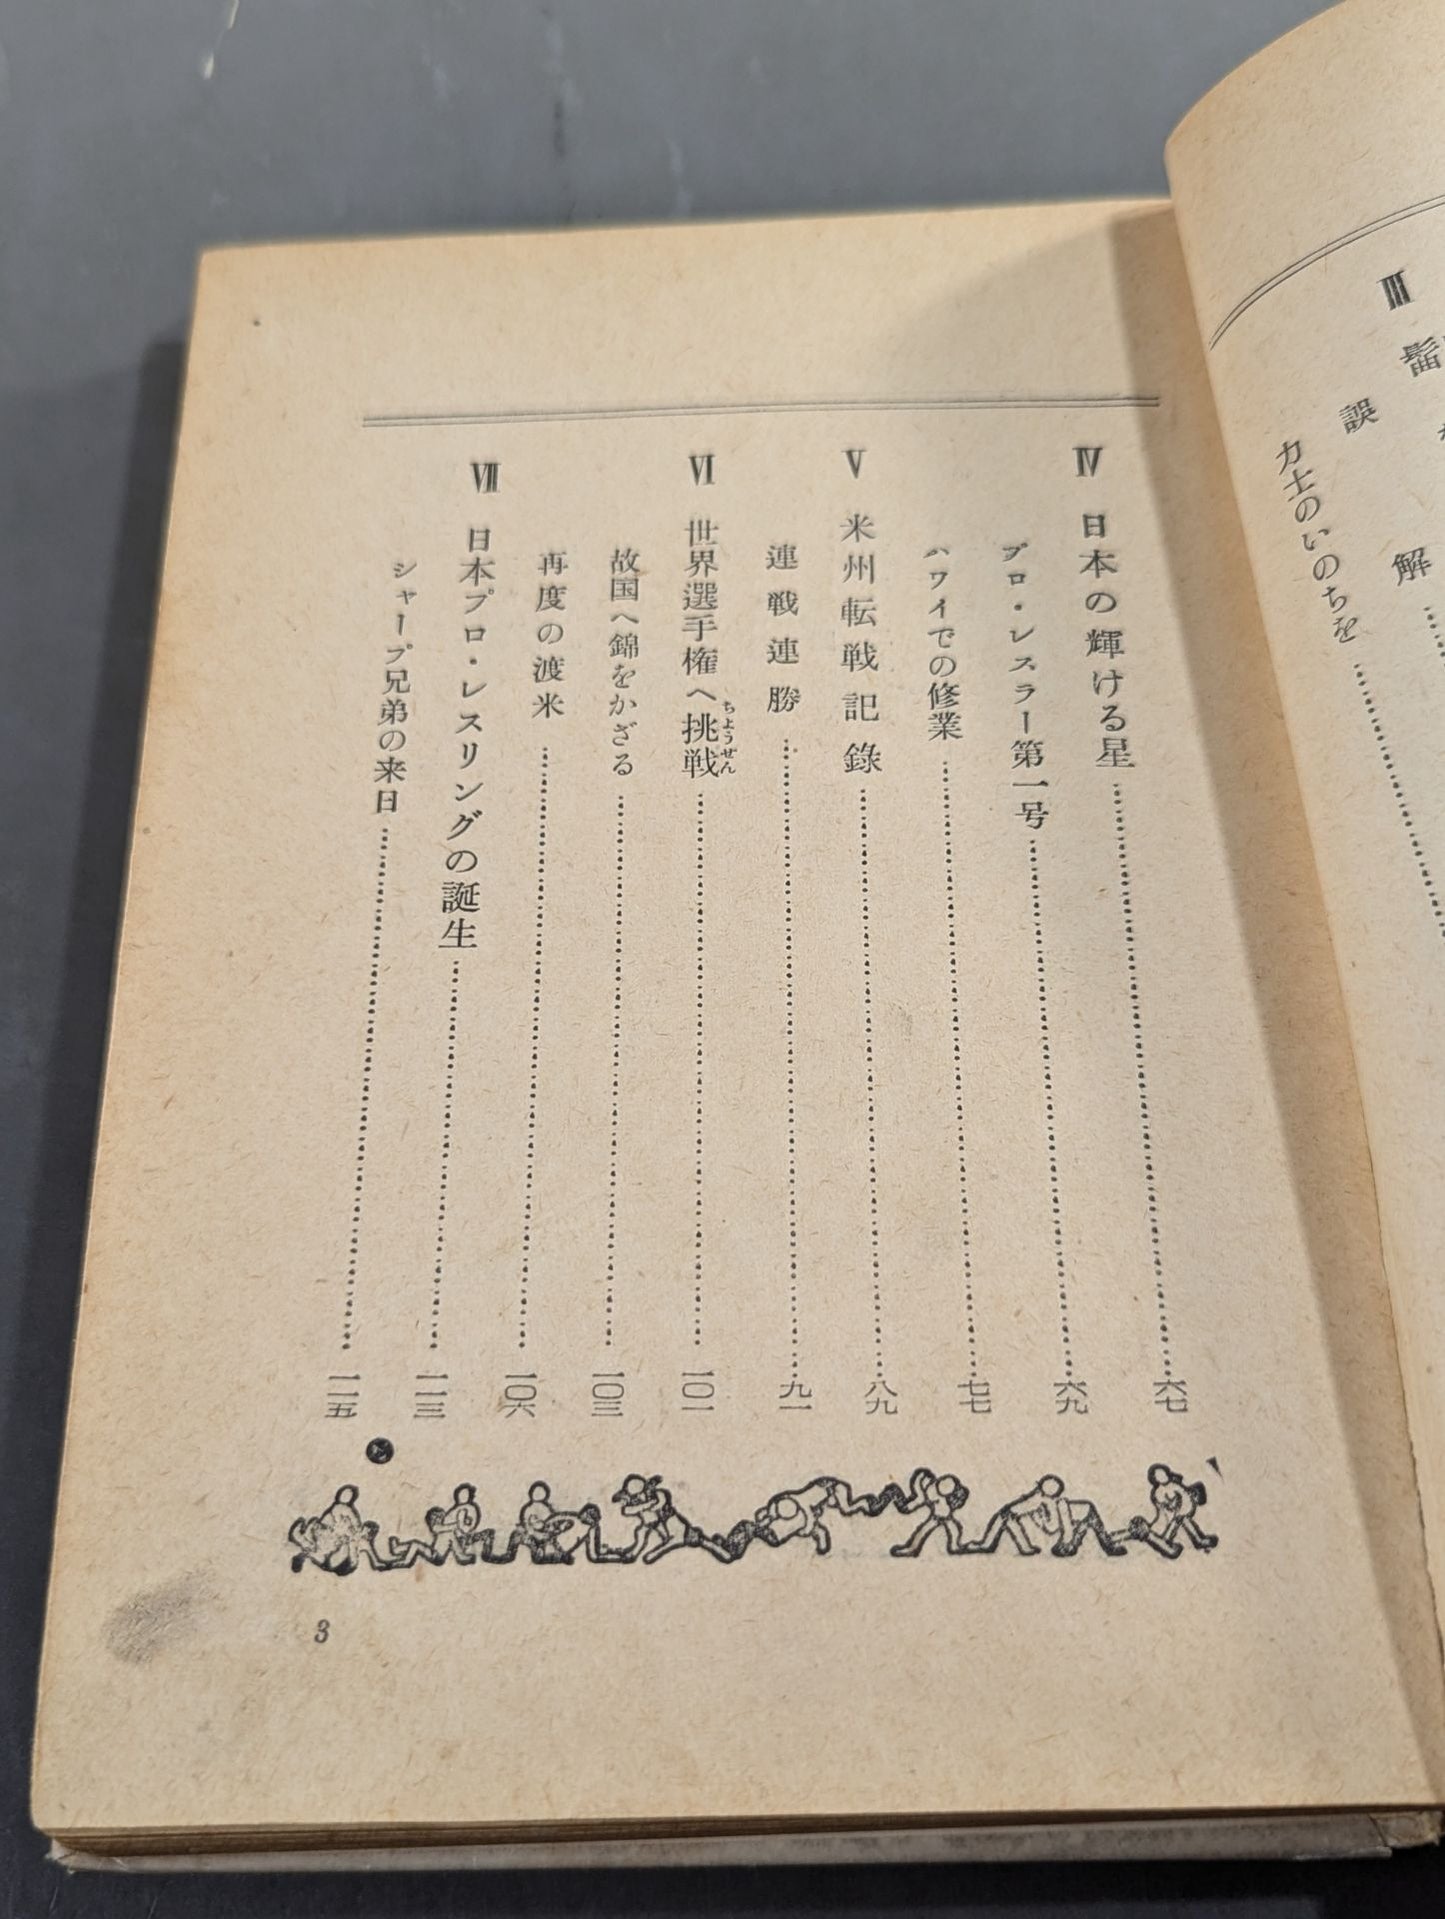 III 髷
誤解……
力士のいのちを……
IV 日本の輝ける星……六七
プロ・レスラー第一号……六九
ハワイでの修業……七七
V 米州転戦記録……八九
連戦連勝……九一
VI 世界選手権へ挑戦……一〇一
ちようせん
故国へ錦をかざる……一〇三
再度の渡米……一〇六
VII 日本プロ・レスリングの誕生……一一三
シャープ兄弟の来日……一一五
3